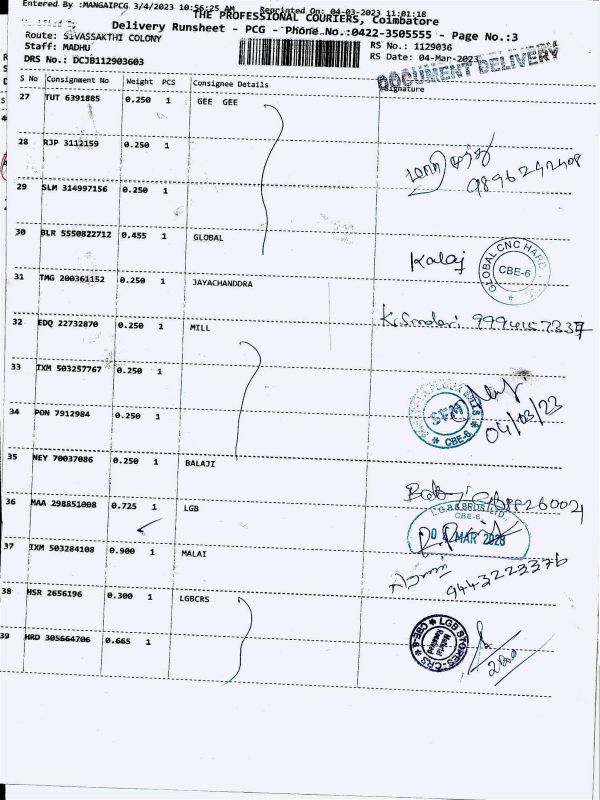 Entered By :MANGAIPCG 3/4/2023 10:56:25 AM Reprinted On: 04-03-2023 11:01:18
THE PROFESSIONAL COURIERS, Coimbatore
Delivery Runsheet - PCG - Phone No.:0422-3505555 - Page No.:3
Route: SIVASSAKTHI COLONY
RS No.: 1129036
Staff: MADHU
RS Date: 04-Mar-2023
DRS No.: DCJB112903603
DOCUMENT DELIVERY
S No Consignment No Weight PCS Consignee Details Signature
27 TUT 6391885 0.250 1 GEE GEE
28 RJP 3112159 0.250 1
9896242408
29 SLM 314997156 0.250 1
30 BLR 5550822712 0.455 1 GLOBAL
Kalaj
GLOBAL CNC HARD
CBE-6
31 TMG 200361152 0.250 1 JAYACHANDDRA
9994457337
32 EDQ 22732870 0.250 1 MILL
33 IXM 503257767 0.250 1
34 PON 7912984 0.250 1
SFM
CBE-6
04/03/23
35 NEY 70037086 0.250 1 BALAJI
36 MAA 298851008 0.725 1 LGB
L.G.B & BROS LTD.
CBE-6.
MAR 2023
37 IXM 503284108 0.900 1 MALAI
9443223376
38 HSR 2656196 0.300 1 LGBCRS
39 HRD 305664706 0.665 1
LGB STORES-CRS CBE-6